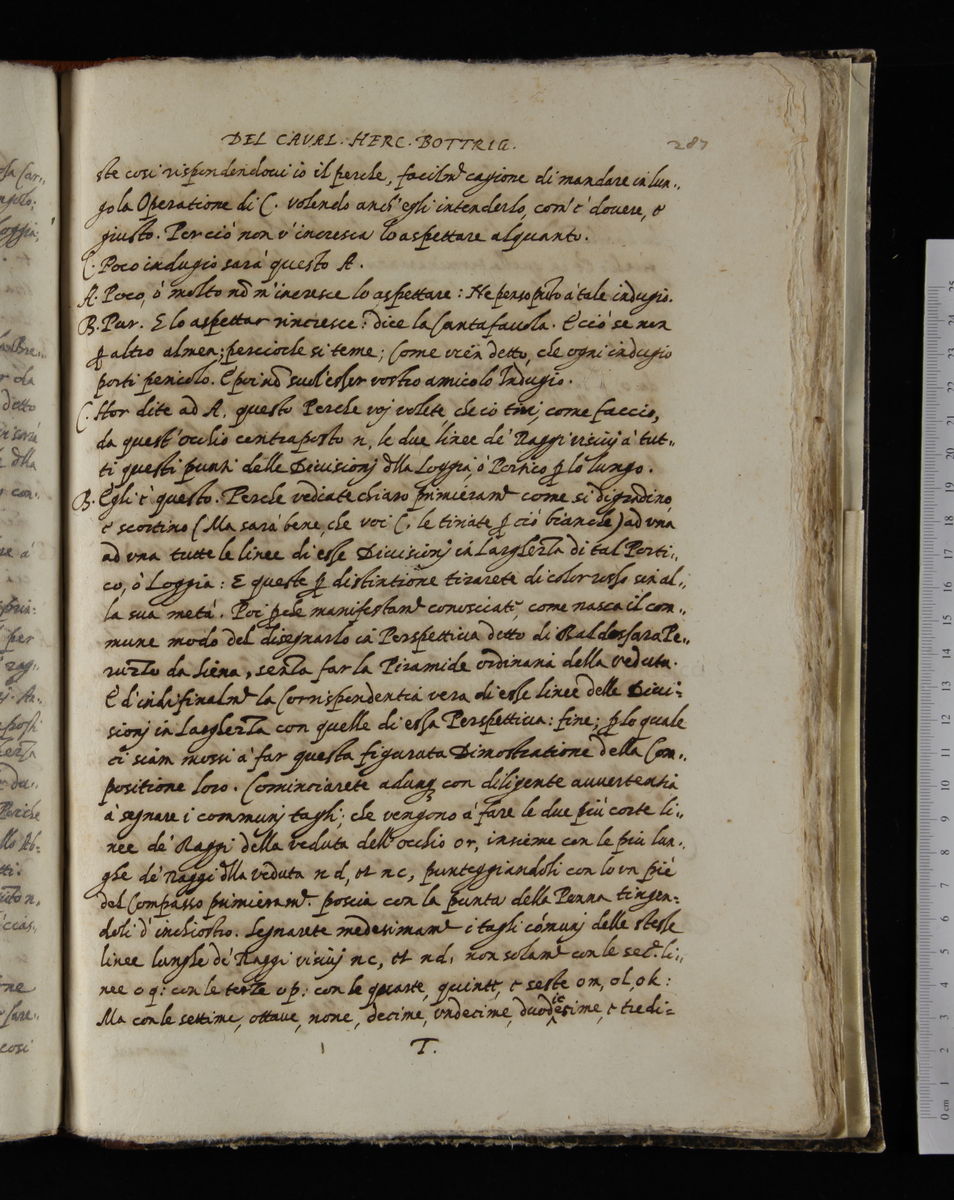 DEL CAVAL. HERC. BOTTRIG. 287
ste così rispondendoui io il perche, facilmte cagione di mandare in lun..
go la Operatione di C. volendo anch'egli intenderlo, com'è douere, e
giusto. Perciò non v'incresca lo aspettare alquanto.
C. Poco indugio sarà questo A.
A. Poco, ò molto nõ m'incresce lo aspettare: Ne penso pũto à tale indugio.
B. Pur. E lo aspettar rincresce: dice la Cantafauola. E ciò se non
ꝑ altro almen; percioche si teme; Come vien detto, che ogni indugio
porti pericolo. E poi nõ suol'esser vostro amico lo Indugio.
C. Hor dite ad A. questo Perche voj volete che io tirj, come faccio,
da quest'occhio contraposto n, le due linee de' Raggi visiuj à tut..
ti questi punti delle Diuisionj dlla Loggia, ò Portico ꝑ lo lungo.
B. Egli è questo. Perche vediate chiaro primieramte come si digradino,
e scortino (Ma sarà bene, che voi C. le tiriate ꝑ ciò bianche) ad vna
ad vna tutte le linee di esse Diuisionj in Larghezza di tal Porti..
co, ò Loggia: E queste ꝑ distintione tirarete di color rosso sin al..
la sua metà. Poi ꝑche manifestamte conosciate, come nasca il com..
mune modo del disegnarlo in Perspettiua detto di Baldessara Pe..
ruzzo da Siena, senza far la Piramide ordinaria della veduta.
E d'indi finalmte la Corrispondentia vera di esse linee delle Diui:
sionj in Larghezza con quelle di essa Perspettiua: fine; ꝑ lo quale
ci siam mossi à far questa figurata Dimostratione della Com..
positione loro. Cominciarete adunq; con diligente auuertentia
à segnare i communj taglj; che vengono à fare le due più corte li..
nee de' Raggi della veduta dell'occhio or, insieme con le più lun..
ghe de' Raggi dlla veduta nd, et nc, punteggiandoli con lo vn piè
del Compasso primieramte. poscia con la punta della Penna tingen:
doli d'inchiostro. Segnarete medesimamte i tagli cõmunj delle stesse
linee lunghe de' Raggi visiuj nc, et nd, non solamte con le sece. li..
nee o q: con le terze o p: con le quarte, quinte, e seste o m, o l, o k:
Ma con le settime, ottaue, none, decime, vndecime, duodecime, e tredi=
T.